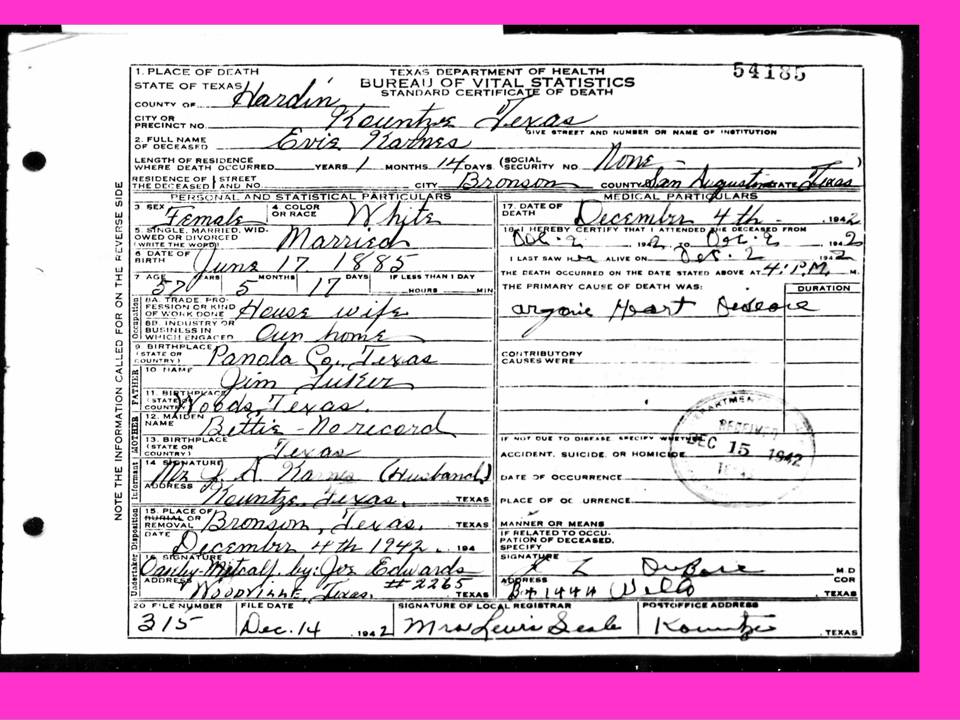 NOTE THE INFORMATION CALLED FOR ON THE REVERSE SIDE
TEXAS DEPARTMENT OF HEALTH
BUREAU OF VITAL STATISTICS
STANDARD CERTIFICATE OF DEATH
54185
1. PLACE OF DEATH
STATE OF TEXAS
COUNTY OF Hardin
CITY OR PRECINCT NO. Kountze Texas
GIVE STREET AND NUMBER OR NAME OF INSTITUTION
2. FULL NAME OF DECEASED Evie Karnes
LENGTH OF RESIDENCE WHERE DEATH OCCURRED YEARS 1 MONTHS 14 DAYS (SOCIAL SECURITY NO. None)
RESIDENCE OF THE DECEASED STREET AND NO. CITY Bronson COUNTY San Augustine STATE Texas
PERSONAL AND STATISTICAL PARTICULARS
3 SEX Female 4 COLOR OR RACE White
5. SINGLE, MARRIED, WIDOWED OR DIVORCED (WRITE THE WORD) Married
6 DATE OF BIRTH June 17 1885
7 AGE 57 YEARS 5 MONTHS 17 DAYS IF LESS THAN 1 DAY HOURS MIN
Occupation
8A. TRADE PROFESSION OR KIND OF WORK DONE House wife
8B. INDUSTRY OR BUSINESS IN WHICH ENGAGED Own home
9 BIRTHPLACE (STATE OR COUNTRY) Panola Co. Texas
FATHER
10 NAME Jim
11. BIRTHPLACE (STATE OR COUNTRY) Woods, Texas.
MOTHER
12. MAIDEN NAME Bettie - No record
13. BIRTHPLACE (STATE OR COUNTRY) Texas
Informant
14 SIGNATURE Mr. Karnes (Husband)
ADDRESS Kountze, Texas. TEXAS
Undertaker Disposition
15. PLACE OF BURIAL OR REMOVAL Bronson, Texas. TEXAS
DATE December 4th 1942. 194
16 SIGNATURE Metcalf by: Joe Edwards
ADDRESS Woodville, Texas. #2265 TEXAS
MEDICAL PARTICULARS
17. DATE OF DEATH December 4th - 1942
18. I HEREBY CERTIFY THAT I ATTENDED THE DECEASED FROM
Dec. 2 1942 TO Dec. 2 1942
I LAST SAW H er ALIVE ON Dec. 2 1942
THE DEATH OCCURRED ON THE DATE STATED ABOVE AT 4: P.M. M.
THE PRIMARY CAUSE OF DEATH WAS: DURATION
organic Heart Disease
CONTRIBUTORY CAUSES WERE
IF NOT DUE TO DISEASE, SPECIFY WHETHER
ACCIDENT, SUICIDE, OR HOMICIDE
RECEIVED
DEC 15 1942
DATE OF OCCURRENCE
PLACE OF OCCURRENCE
MANNER OR MEANS
IF RELATED TO OCCUPATION OF DECEASED, SPECIFY
SIGNATURE L DuBose M D
COR
ADDRESS TEXAS
20 FILE NUMBER 315
FILE DATE Dec. 14, 1942
SIGNATURE OF LOCAL REGISTRAR Mrs Lewis Seale
POSTOFFICE ADDRESS Kountze, TEXAS